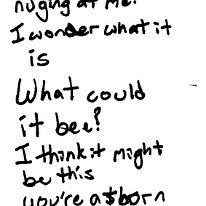 nuging at me.
I wonder what it
is
What could
it bee?
I think it might
be this
you're a born